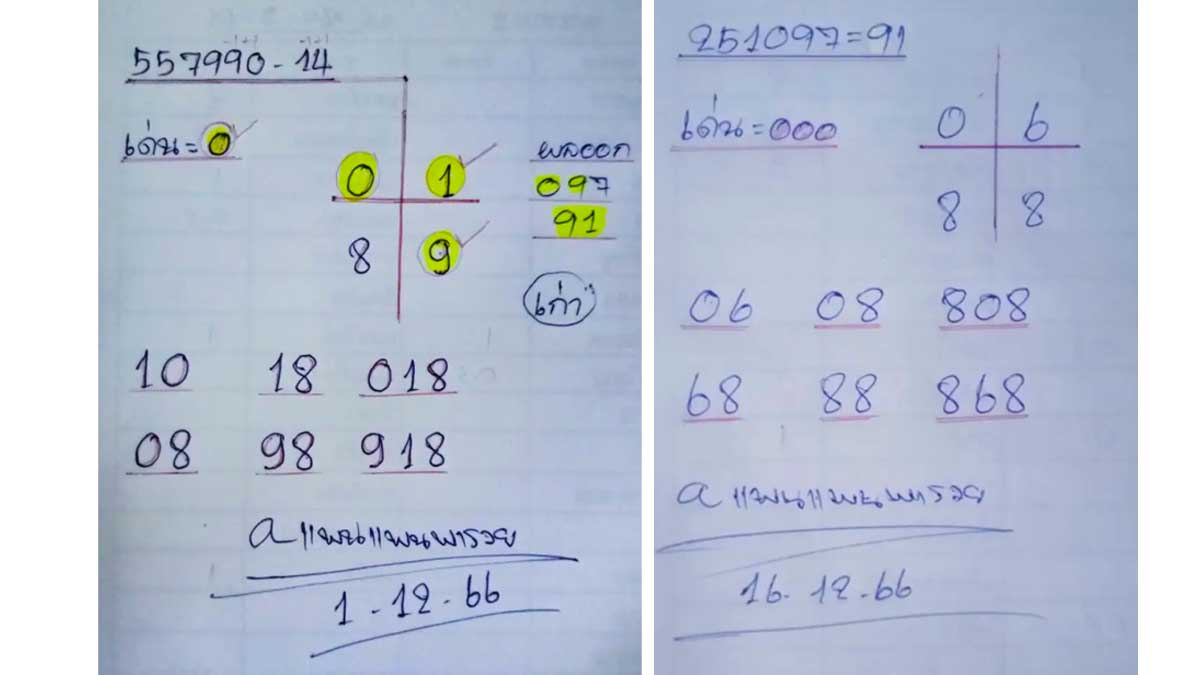 557990 - 14
เด่น = 0
0 1
8 9
ผลออก
097
91
เก่า
10 18 018
08 98 918
a แพนแพนพารวย
1 - 12 - 66
251097 = 91
เด่น = 000
0 6
8 8
06 08 808
68 88 868
a แพนแพนพารวย
16 - 12 - 66